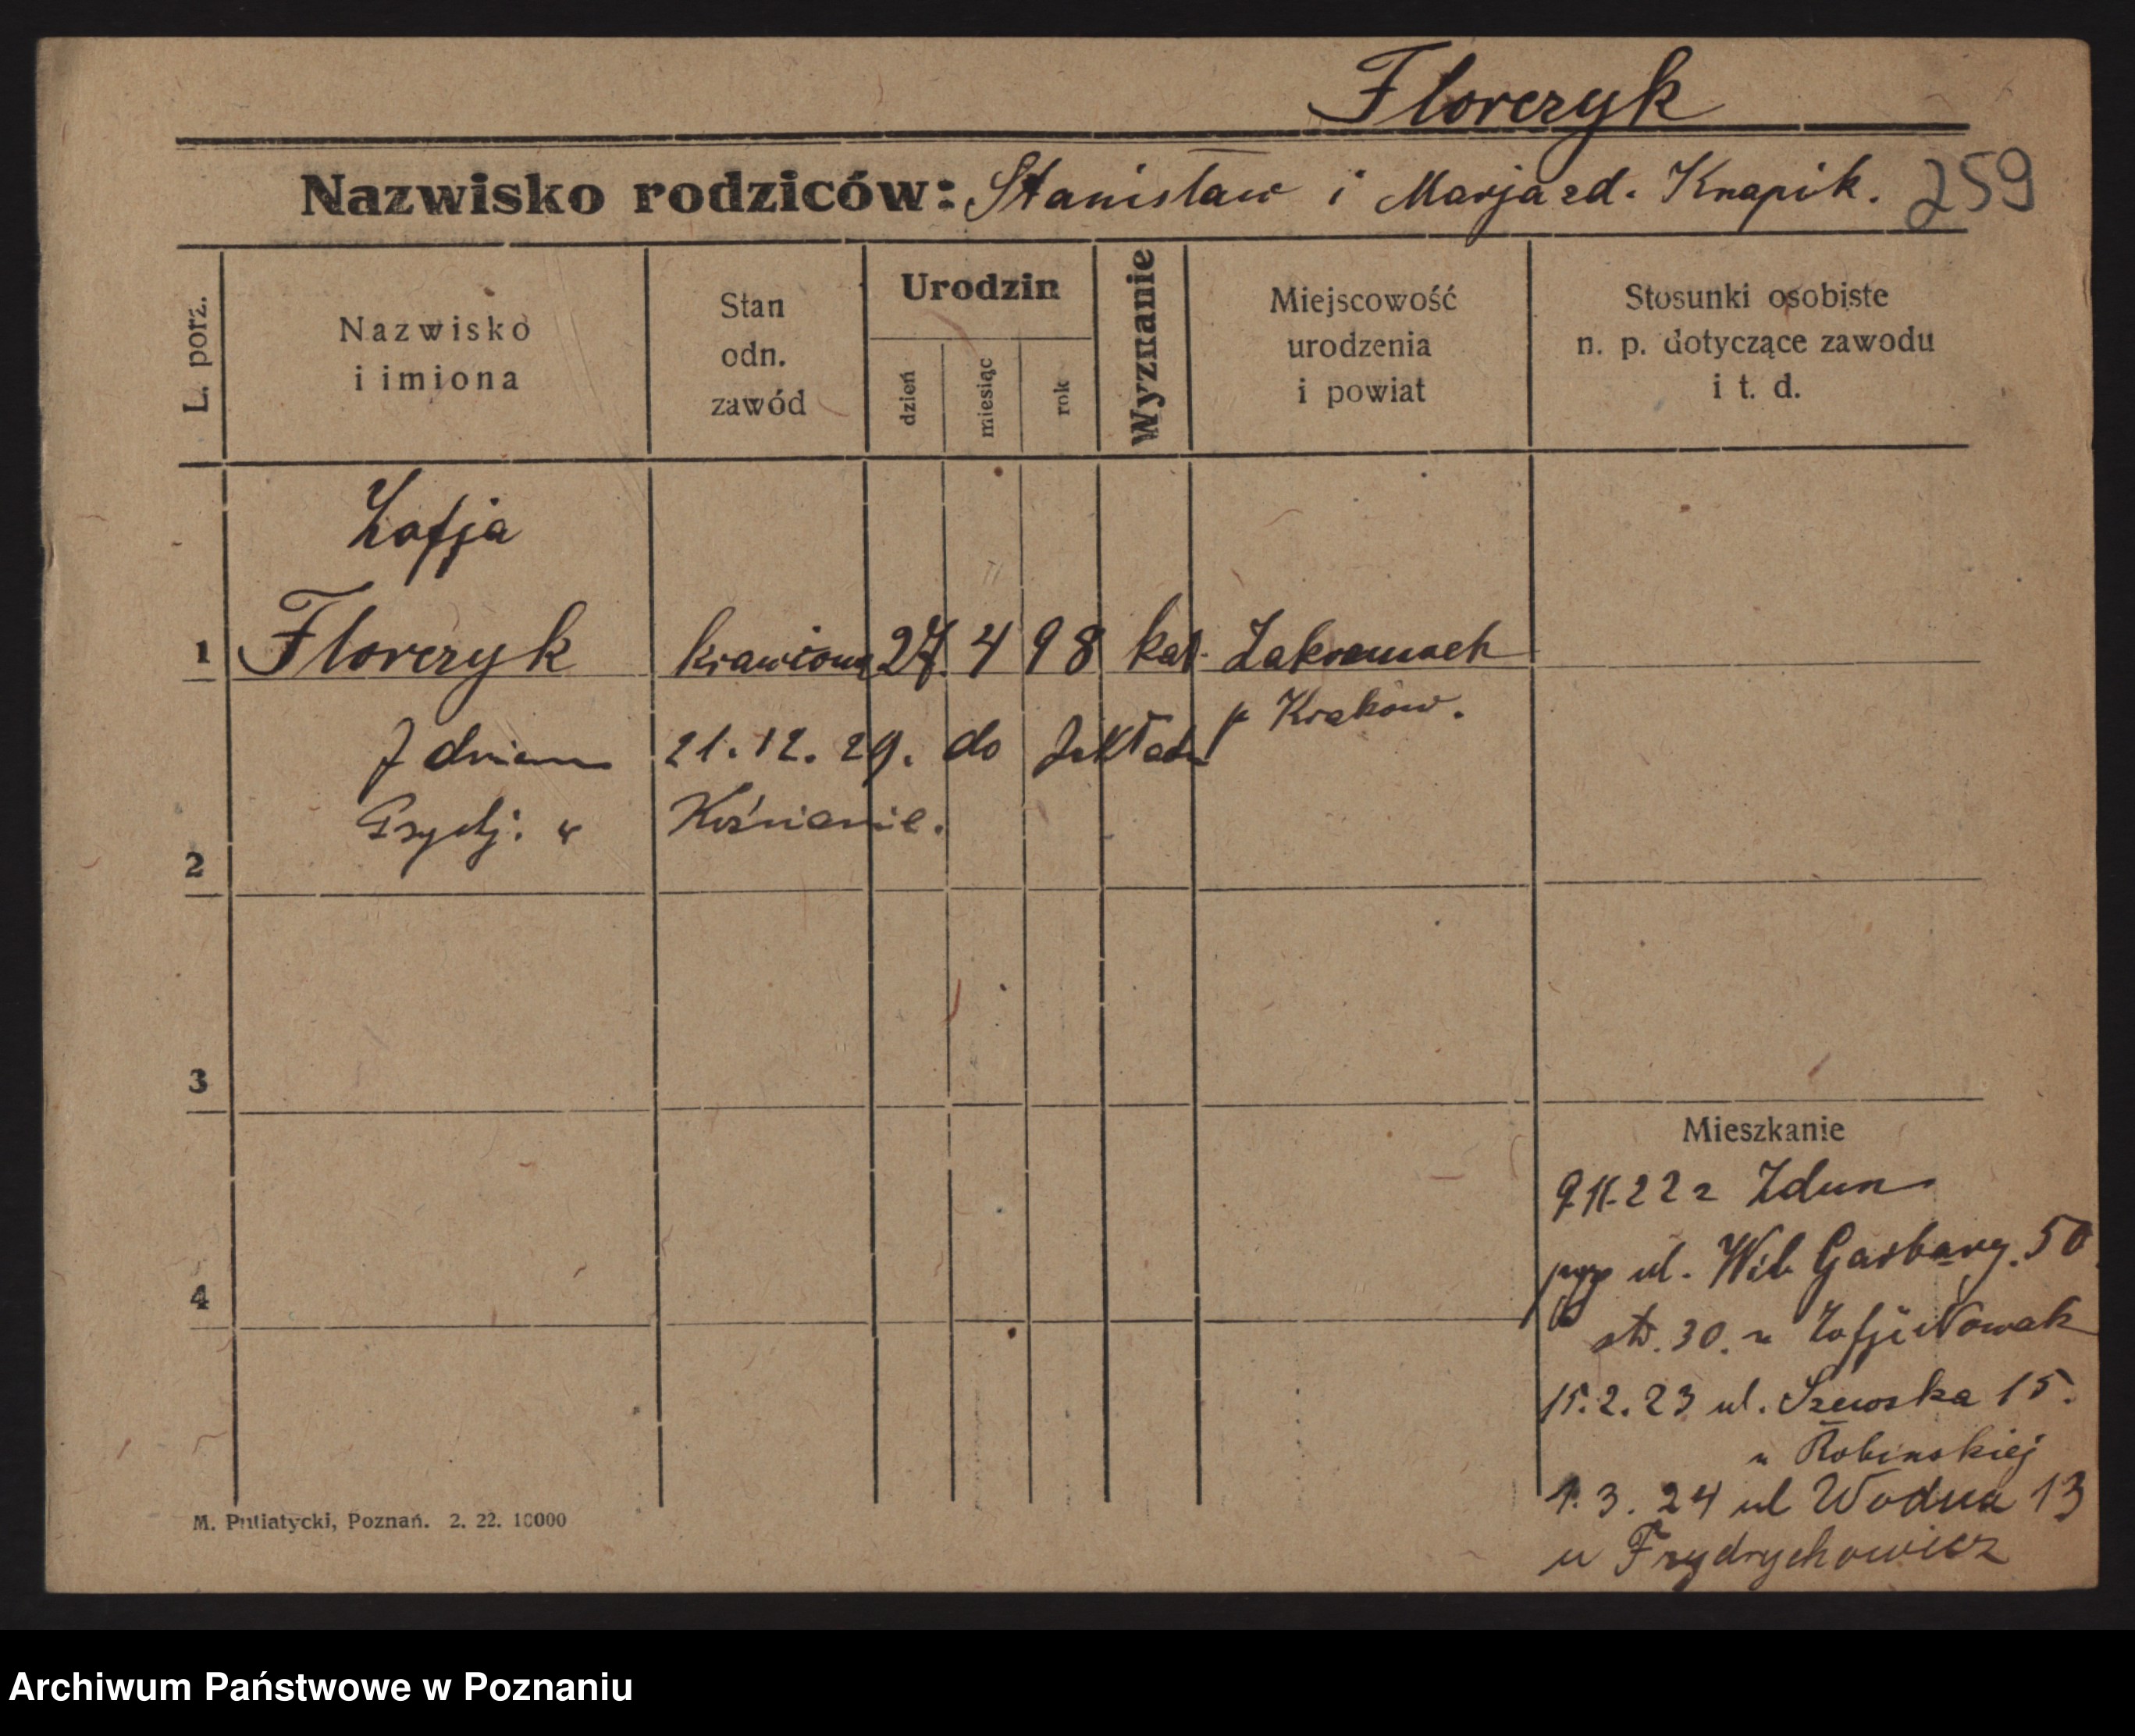 Florczyk
Nazwisko rodziców: Stanisław i Marja zd. Knapik. 259
L. porz.
Nazwisko
i imiona
Stan
odn.
zawód
Urodzin
dzień
miesiąc
rok
Wyznanie
Miejscowość
urodzenia
i powiat
Stosunki osobiste
n. p. dotyczące zawodu
i t. d.
Zofja
1 Florczyk krawcowa 27. 4 98 kat.
p Kraków.
Z dniem 21.12.29. do Zakładu
Psychj. w Kościanie.
2
3
4
Mieszkanie
9.11.22 z Zdun
ul. Wlk Garbary. 50
30. u Zofji Nowak
15.2.23 ul. Szewska 15.
u Robinskiej
1.3.24 ul Wodna 13
u Frydrychowicz
M. Putiatycki, Poznań. 2. 22. 10000
Archiwum Państwowe w Poznaniu